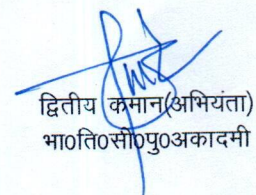 द्वितीय कमान(अभियंता)
भा०ति०सी०पु०अकादमी